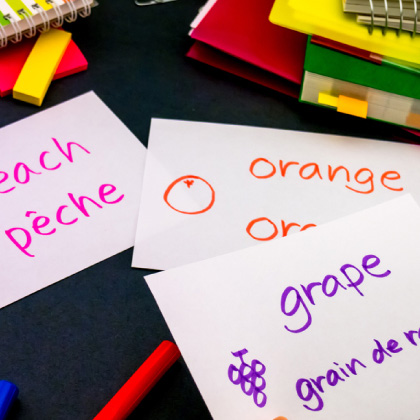 each
pêche
orange
grape
grain de